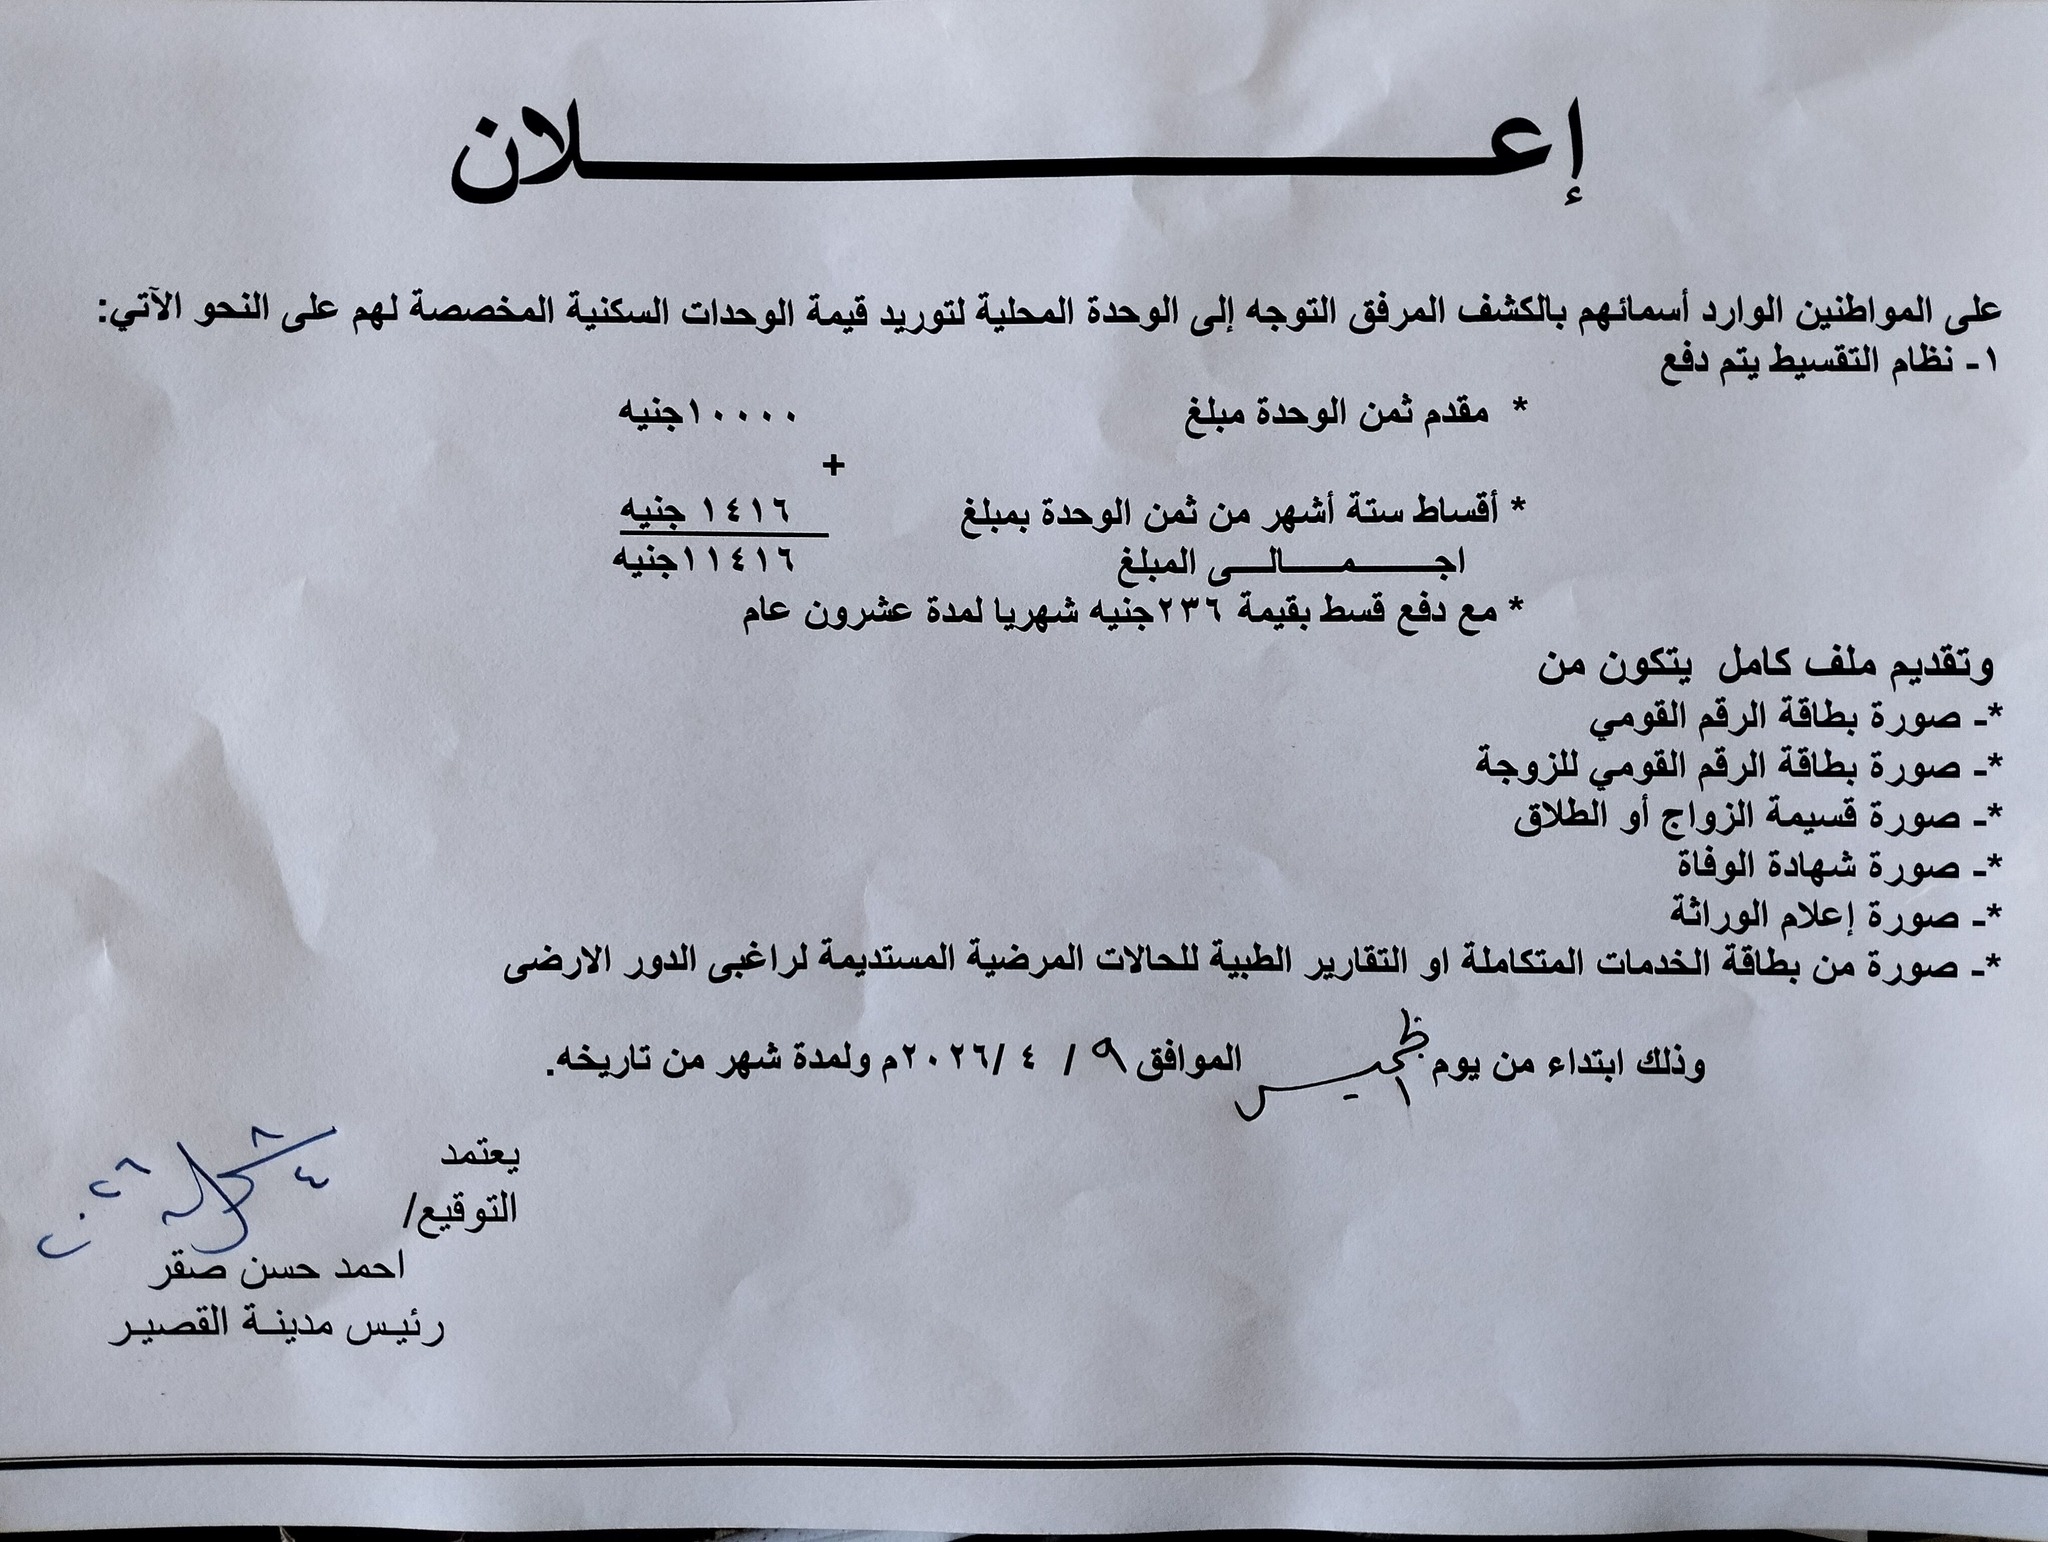 إعـــــــــــــــــــــــلان
على المواطنين الوارد أسمائهم بالكشف المرفق التوجه إلى الوحدة المحلية لتوريد قيمة الوحدات السكنية المخصصة لهم على النحو الآتي:
١- نظام التقسيط يتم دفع
* مقدم ثمن الوحدة مبلغ ١٠٠٠٠جنيه
+
* أقساط ستة أشهر من ثمن الوحدة بمبلغ ١٤١٦ جنيه
اجـــــــمـــــــالـــــى المبلغ ١١٤١٦جنيه
* مع دفع قسط بقيمة ٢٣٦جنيه شهريا لمدة عشرون عام
وتقديم ملف كامل يتكون من
*- صورة بطاقة الرقم القومي
*- صورة بطاقة الرقم القومي للزوجة
*- صورة قسيمة الزواج أو الطلاق
*- صورة شهادة الوفاة
*- صورة إعلام الوراثة
*- صورة من بطاقة الخدمات المتكاملة او التقارير الطبية للحالات المرضية المستديمة لراغبى الدور الارضى
وذلك ابتداء من يوم الخميس الموافق ٩ / ٤ /٢٠٢٦م ولمدة شهر من تاريخه.
يعتمد
التوقيع/ ٨/٤ ٢٠٢٦
احمد حسن صقر
رئيس مدينة القصير